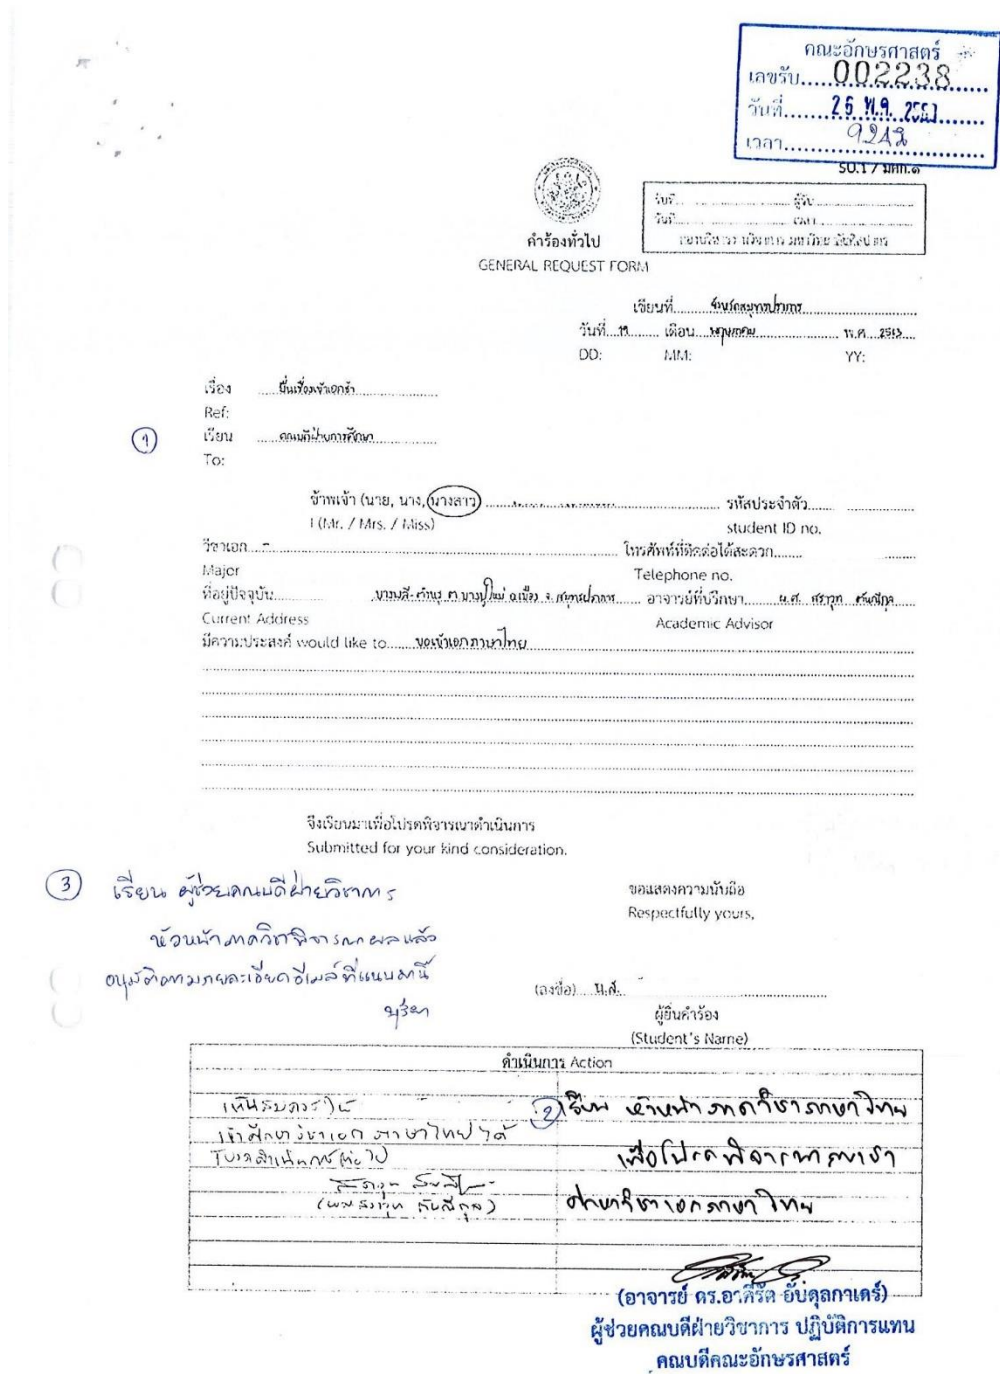 คณะอักษรศาสตร์
เลขรับ.....002238
วันที่.....26 พ.ค. 2563
เวลา.....
รบ.1 / มศก.๑
รับที่..... ผู้รับ.....
วันที่..... เวลา.....
กองบริหารงานวิชาการ มหาวิทยาลัยศิลปากร
คำร้องทั่วไป
GENERAL REQUEST FORM
เขียนที่.....จังหวัดสมุทรปราการ
วันที่..19.. เดือน..พฤษภาคม.. พ.ศ. 2563
DD: MM: YY:
เรื่อง ยื่นเรื่องเข้าเอกช้า
Ref:
1 เรียน คณบดีฝ่ายการศึกษา
To:
ข้าพเจ้า (นาย, นาง, นางสาว) ..... รหัสประจำตัว.....
I (Mr. / Mrs. / Miss) student ID no.
วิชาเอก..... โทรศัพท์ที่ติดต่อได้สะดวก.....
Major Telephone no.
ที่อยู่ปัจจุบัน บางพลี-ตำหรุ ต บางปูใหม่ อ.เมือง จ. สมุทรปราการ อาจารย์ที่ปรึกษา ผ.ศ. สราวุท ตันณีกุล
Current Address Academic Advisor
มีความประสงค์ would like to.....ขอเข้าเอกภาษาไทย
จึงเรียนมาเพื่อโปรดพิจารณาดำเนินการ
Submitted for your kind consideration.
3 เรียน ผู้ช่วยคณบดีฝ่ายวิชาการ
ขอแสดงความนับถือ
Respectfully yours,
หัวหน้าภาควิชาพิจารณาผลแล้ว
อนุมัติตามรายละเอียดอีเมล์ที่แนบมานี้
(ลงชื่อ) น.ส.
ผู้ยื่นคำร้อง
(Student's Name)
ดำเนินการ Action
เห็นสมควรให้
เข้าศึกษาวิชาเอก ภาษาไทยได้
โปรดดำเนินการต่อไป
2 เรียน หัวหน้าภาควิชาภาษาไทย
เพื่อโปรดพิจารณาการเข้า
ศึกษาวิชาเอกภาษาไทย
(อาจารย์ ดร.อาคีรัต อับดุลกาเดร์)
ผู้ช่วยคณบดีฝ่ายวิชาการ ปฏิบัติการแทน
คณบดีคณะอักษรศาสตร์